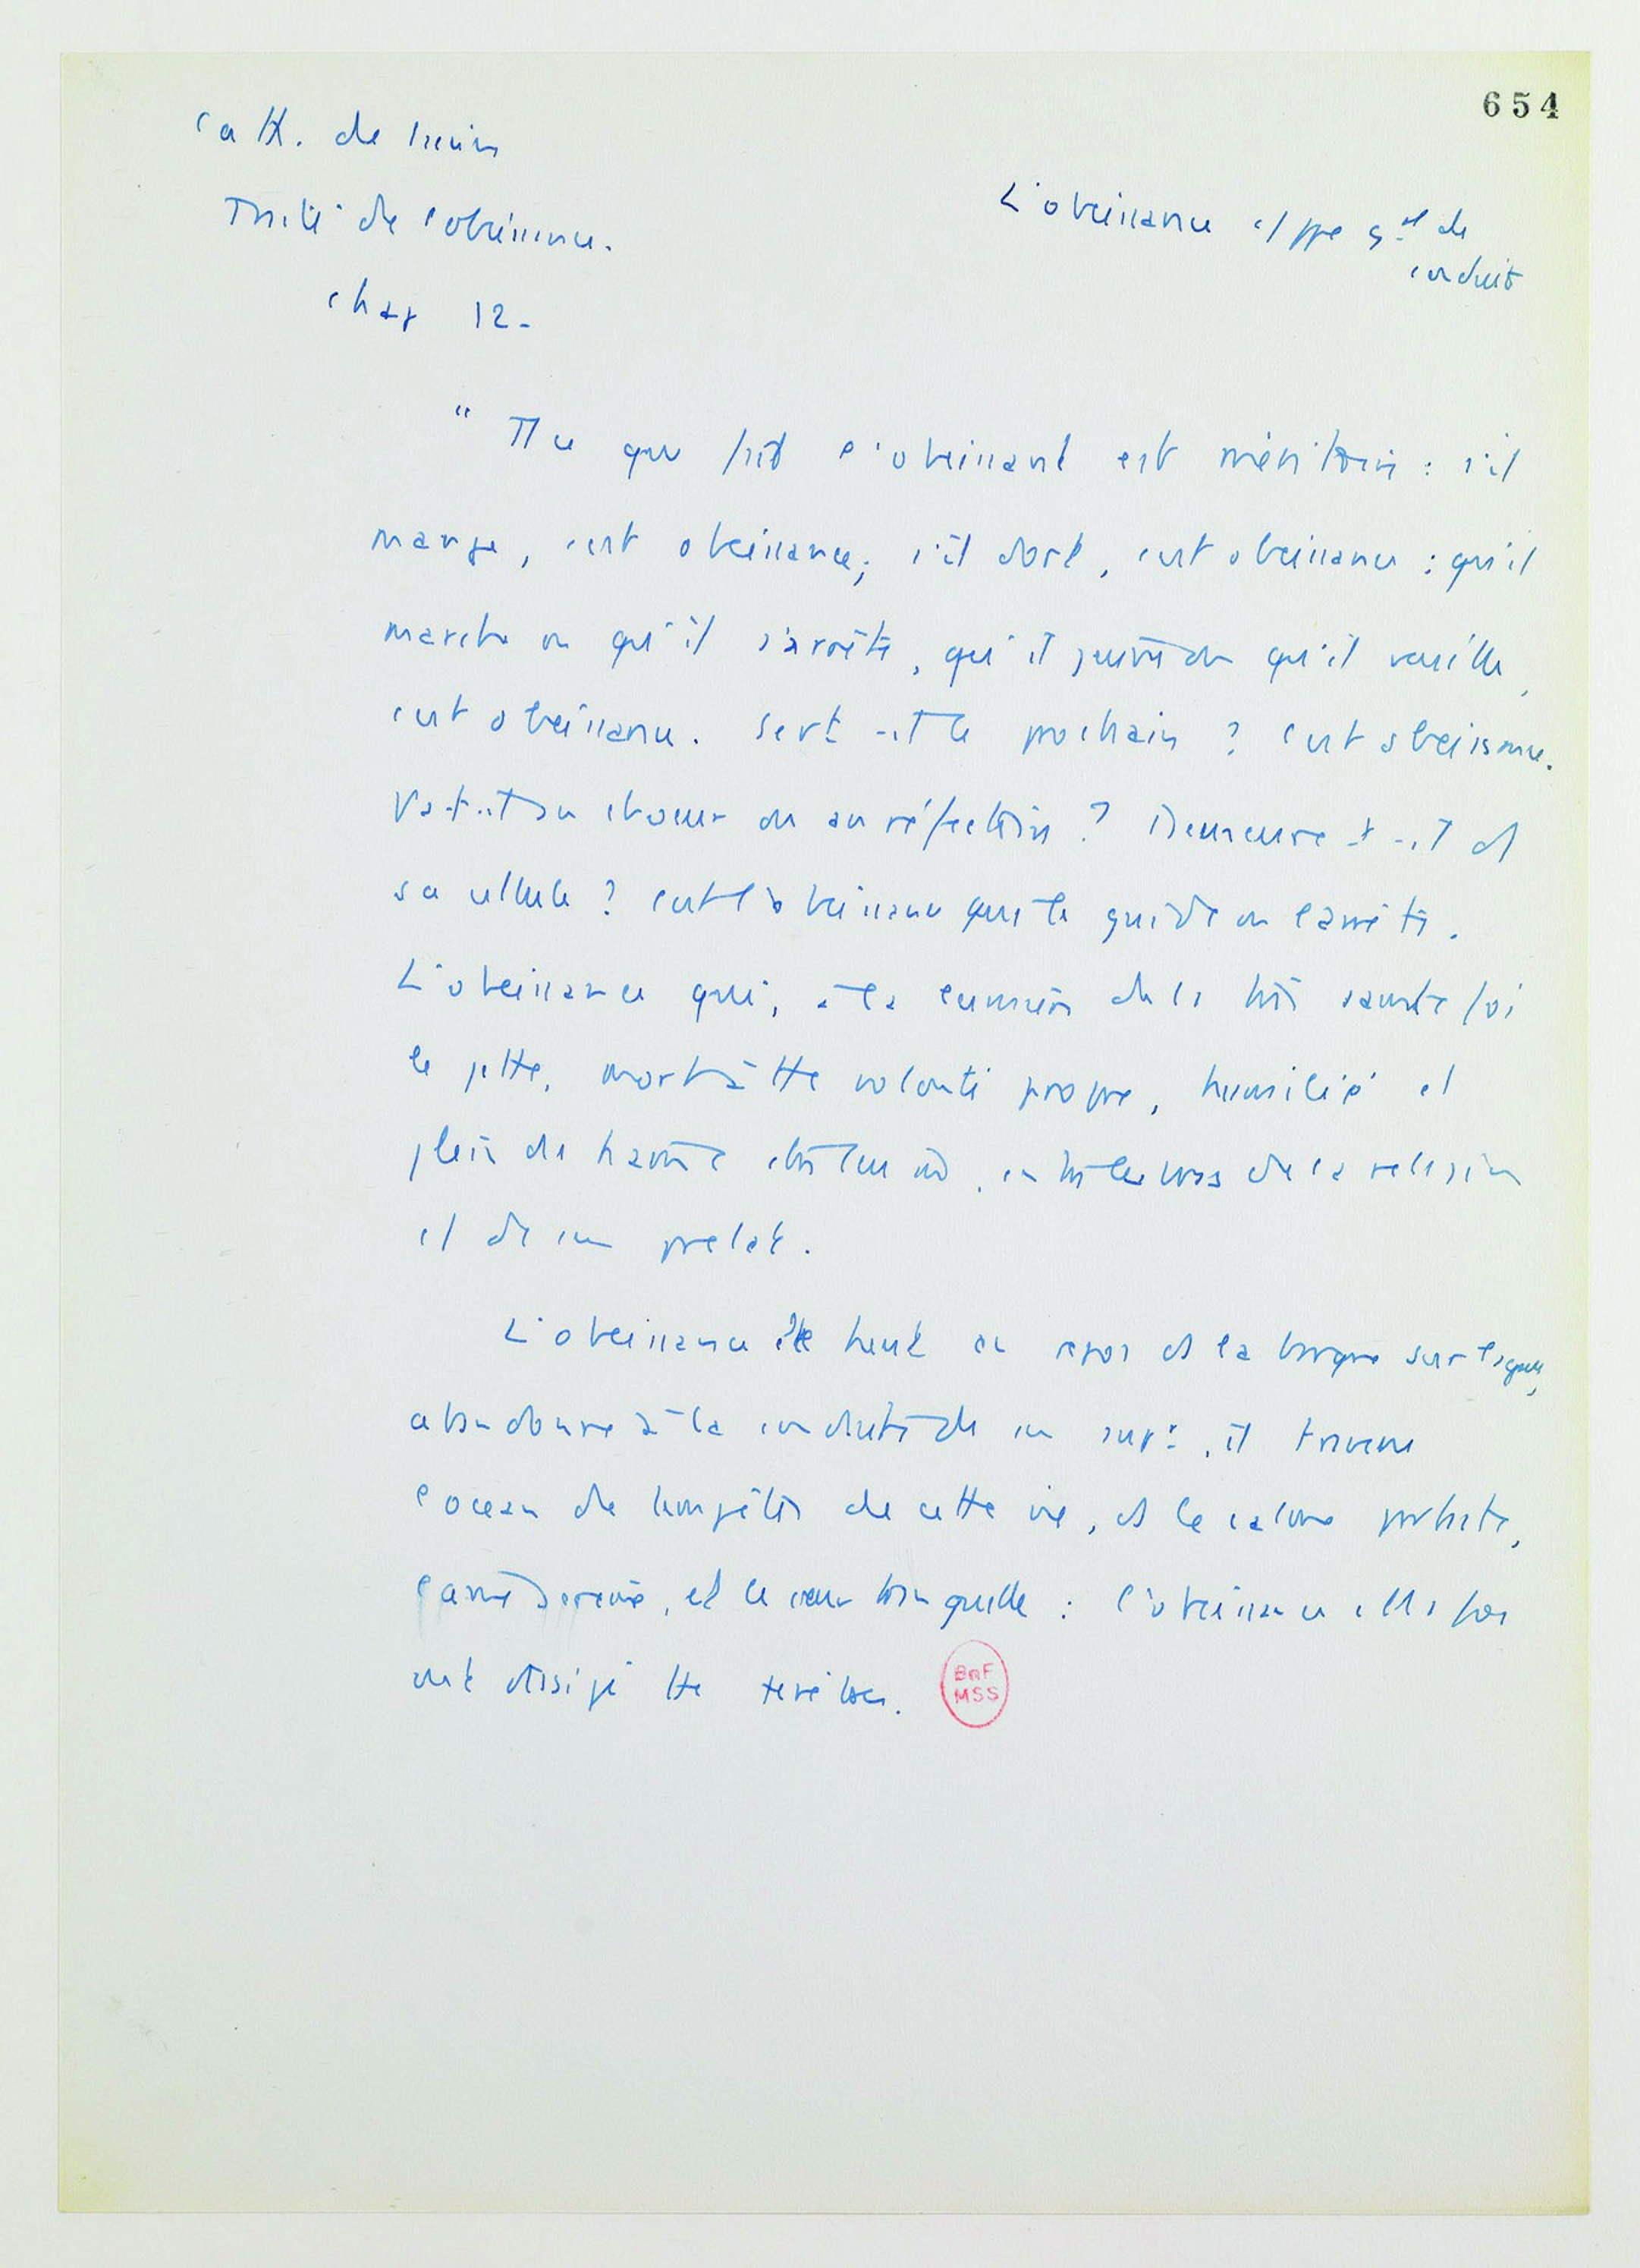 654
Cath. de Sienne
Traité de l'obéissance.
L'obéissance et ppe gal de
conduite
chap 12-
"Tt ce que fait l'obeissant est méritoire : s'il
mange, c'est obeissance ; s'il dort, c'est obeissance : qu'il
marche ou qu'il s'arrête, qu'il jeûne ou qu'il veille,
c'est obeissance. Sert-il le prochain ? C'est obeissance.
Va-t-il au choeur ou au réfectoire ? Demeure-t-il ds
sa cellule ? C'est l'obeissance qui le guide ou l'arrête.
L'obeissance qui, à la lumière de la très sainte foi
le jette, mort à tte volonté propre, humilié et
plein de haine contre soi, entre les bras de la religion
et de son prelat.
L'obeissance le tient en repos ds la barque sur laquelle,
abandonné à la conduite de son supr, il traverse
l'ocean de tempêtes de cette vie, ds le calme parfait,
l'ame sereine, et le coeur tranquille : l'obeissance et la foi
ont dissipé tte ténèbres.
BnF
MSS